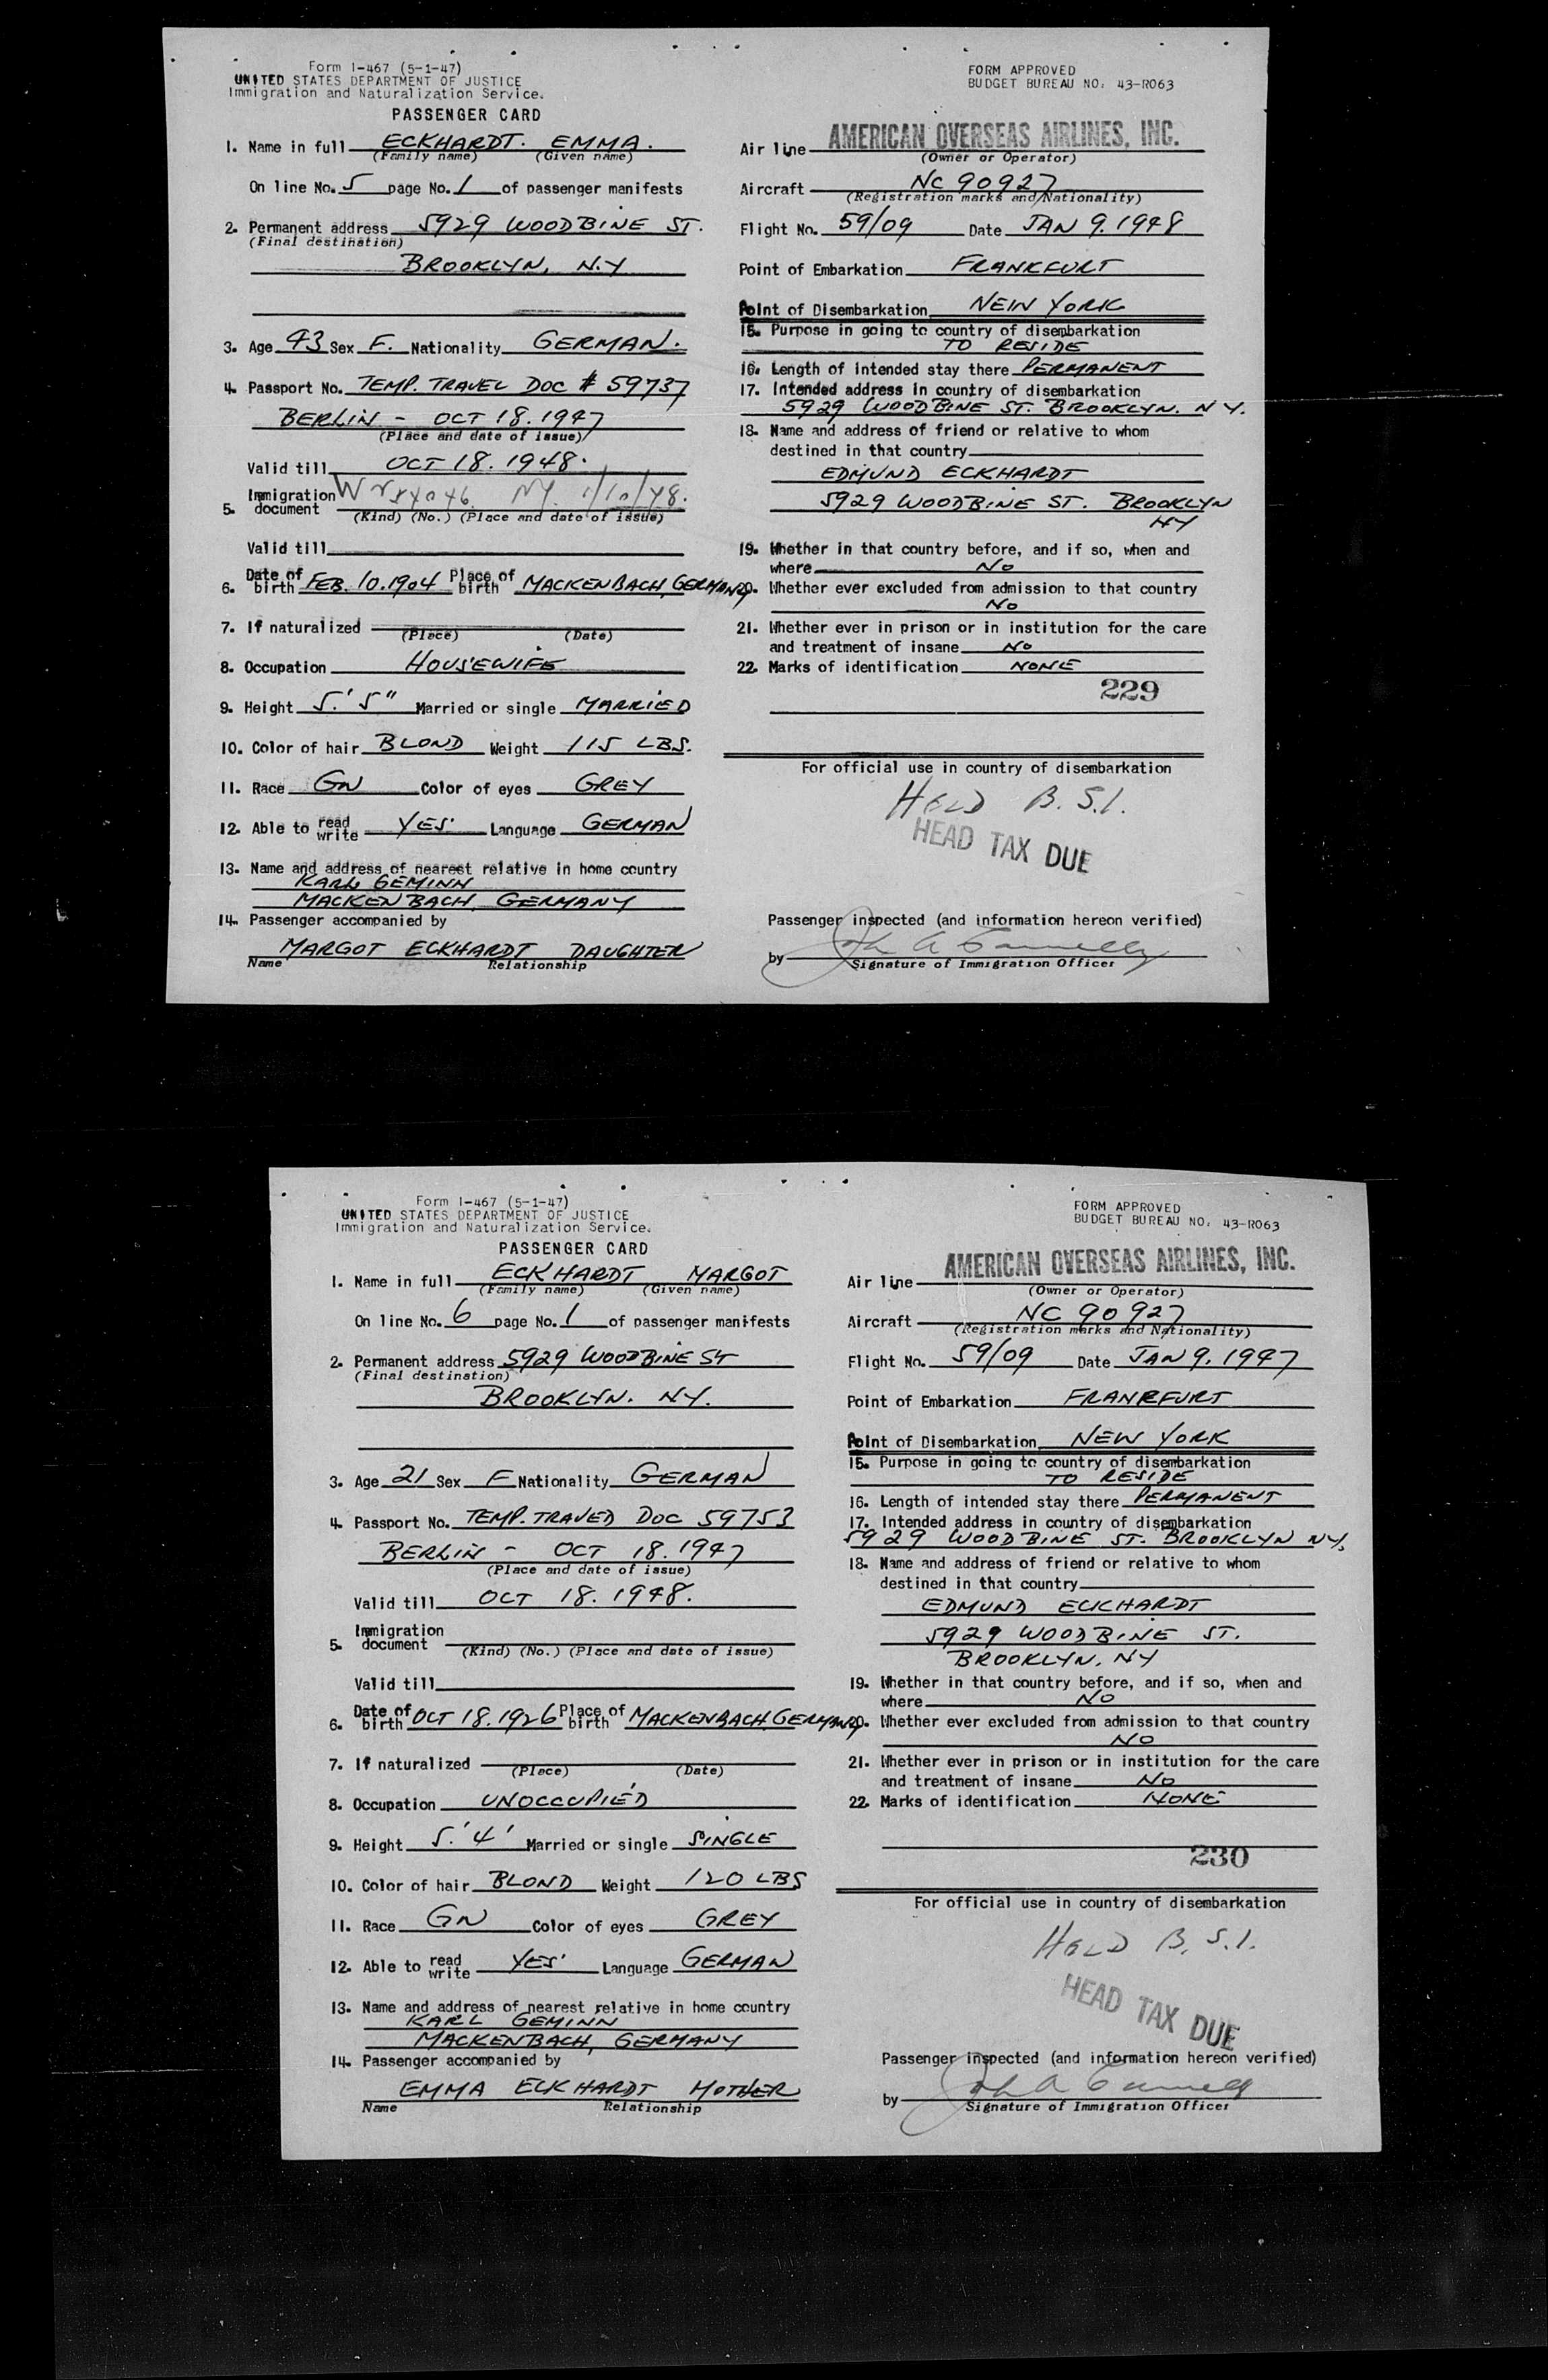 Form I-467 (5-1-47)
UNITED STATES DEPARTMENT OF JUSTICE
Immigration and Naturalization Service.
PASSENGER CARD
1. Name in full ECKHARDT. EMMA.
(Family name) (Given name)
On line No. 5 page No. 1 of passenger manifests
2. Permanent address 5929 WOODBINE ST.
(Final destination)
BROOKLYN, N.Y
3. Age 43 Sex F. Nationality GERMAN.
4. Passport No. TEMP. TRAVEL DOC # 59737
BERLIN - OCT 18. 1947
(Place and date of issue)
Valid till OCT 18. 1948.
5. Immigration document NY. 1/10/48.
(Kind) (No.) (Place and date of issue)
Valid till
6. Date of birth FEB. 10.1904 Place of birth MACKENBACH, GERMANY
7. If naturalized
(Place) (Date)
8. Occupation HOUSEWIFE
9. Height 5.' 5" Married or single MARRIED
10. Color of hair BLOND Weight 115 LBS.
11. Race GN Color of eyes GREY
12. Able to read write YES. Language GERMAN
13. Name and address of nearest relative in home country
KARL GEMINN
MACKENBACH, GERMANY
14. Passenger accompanied by
MARGOT ECKHARDT DAUGHTER
Name Relationship
FORM APPROVED
BUDGET BUREAU NO. 43-R063
Air line AMERICAN OVERSEAS AIRLINES, INC.
(Owner or Operator)
Aircraft NC 90927
(Registration marks and Nationality)
Flight No. 59/09 Date JAN 9. 1948
Point of Embarkation FRANKFURT
Point of Disembarkation NEW YORK
15. Purpose in going to country of disembarkation
TO RESIDE
16. Length of intended stay there PERMANENT
17. Intended address in country of disembarkation
5929 WOODBINE ST. BROOKLYN. N Y.
18. Name and address of friend or relative to whom
destined in that country
EDMUND ECKHARDT
5929 WOODBINE ST. BROOKLYN
NY
19. Whether in that country before, and if so, when and
where No
20. Whether ever excluded from admission to that country
No
21. Whether ever in prison or in institution for the care
and treatment of insane No
22. Marks of identification NONE
229
For official use in country of disembarkation
HELD B. S.I.
HEAD TAX DUE
Passenger inspected (and information hereon verified)
by John A Connelly
Signature of Immigration Officer
Form I-467 (5-1-47)
UNITED STATES DEPARTMENT OF JUSTICE
Immigration and Naturalization Service.
PASSENGER CARD
1. Name in full ECKHARDT MARGOT
(Family name) (Given name)
On line No. 6 page No. 1 of passenger manifests
2. Permanent address 5929 WOODBINE ST
(Final destination)
BROOKLYN. NY.
3. Age 21 Sex F Nationality GERMAN
4. Passport No. TEMP. TRAVED DOC 59753
BERLIN - OCT 18. 1947
(Place and date of issue)
Valid till OCT 18. 1948.
5. Immigration document
(Kind) (No.) (Place and date of issue)
Valid till
6. Date of birth OCT 18. 1926 Place of birth MACKENBACH, GERMANY
7. If naturalized
(Place) (Date)
8. Occupation UNOCCUPIED
9. Height 5.' 4' Married or single SINGLE
10. Color of hair BLOND Weight 120 LBS
11. Race GN Color of eyes GREY
12. Able to read write YES. Language GERMAN
13. Name and address of nearest relative in home country
KARL GEMINN
MACKENBACH, GERMANY
14. Passenger accompanied by
EMMA ECKHARDT MOTHER
Name Relationship
FORM APPROVED
BUDGET BUREAU NO. 43-R063
Air line AMERICAN OVERSEAS AIRLINES, INC.
(Owner or Operator)
Aircraft NC 90927
(Registration marks and Nationality)
Flight No. 59/09 Date JAN 9. 1947
Point of Embarkation FRANKFURT
Point of Disembarkation NEW YORK
15. Purpose in going to country of disembarkation
TO RESIDE
16. Length of intended stay there PERMANENT
17. Intended address in country of disembarkation
5929 WOODBINE ST. BROOKLYN NY.
18. Name and address of friend or relative to whom
destined in that country
EDMUND ECKHARDT
5929 WOODBINE ST.
BROOKLYN, NY
19. Whether in that country before, and if so, when and
where No
20. Whether ever excluded from admission to that country
NO
21. Whether ever in prison or in institution for the care
and treatment of insane No
22. Marks of identification NONE
230
For official use in country of disembarkation
HELD B. S.I.
HEAD TAX DUE
Passenger inspected (and information hereon verified)
by John A Connelly
Signature of Immigration Officer